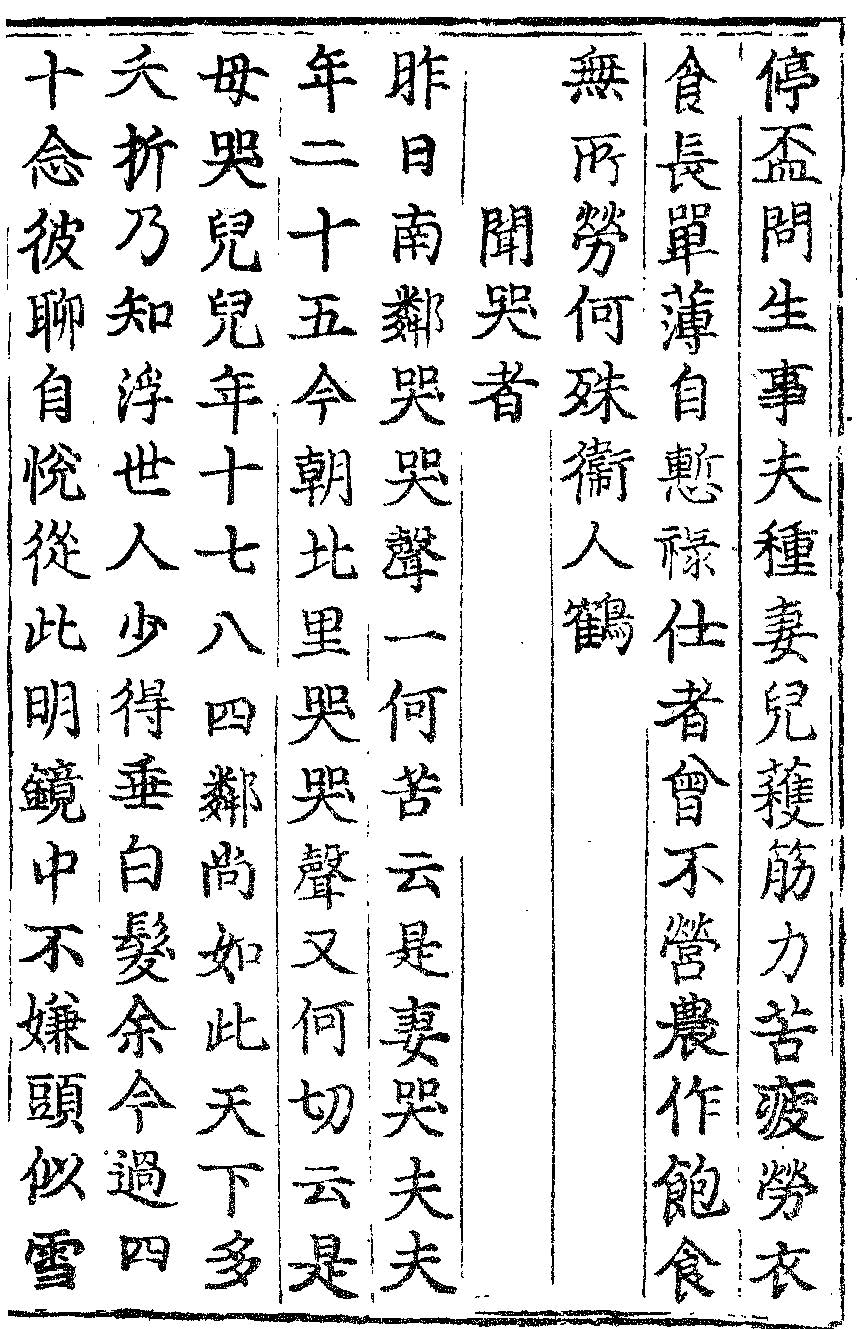 停盃問生事夫種妻兒蓛筋力苦疲勞衣
食長單薄自慙祿仕者曾不營農作飽食
無所勞何殊衞人鶴
聞哭者
昨日南鄰哭哭聲一何苦云是妻哭夫夫
年二十五今朝北里哭哭聲又何切云是
母哭兒兒年十七八四鄰尚如此天下多
夭折乃知浮世人少得垂白髮余今過四
十念彼聊自悅從此明鏡中不嫌頭似雪